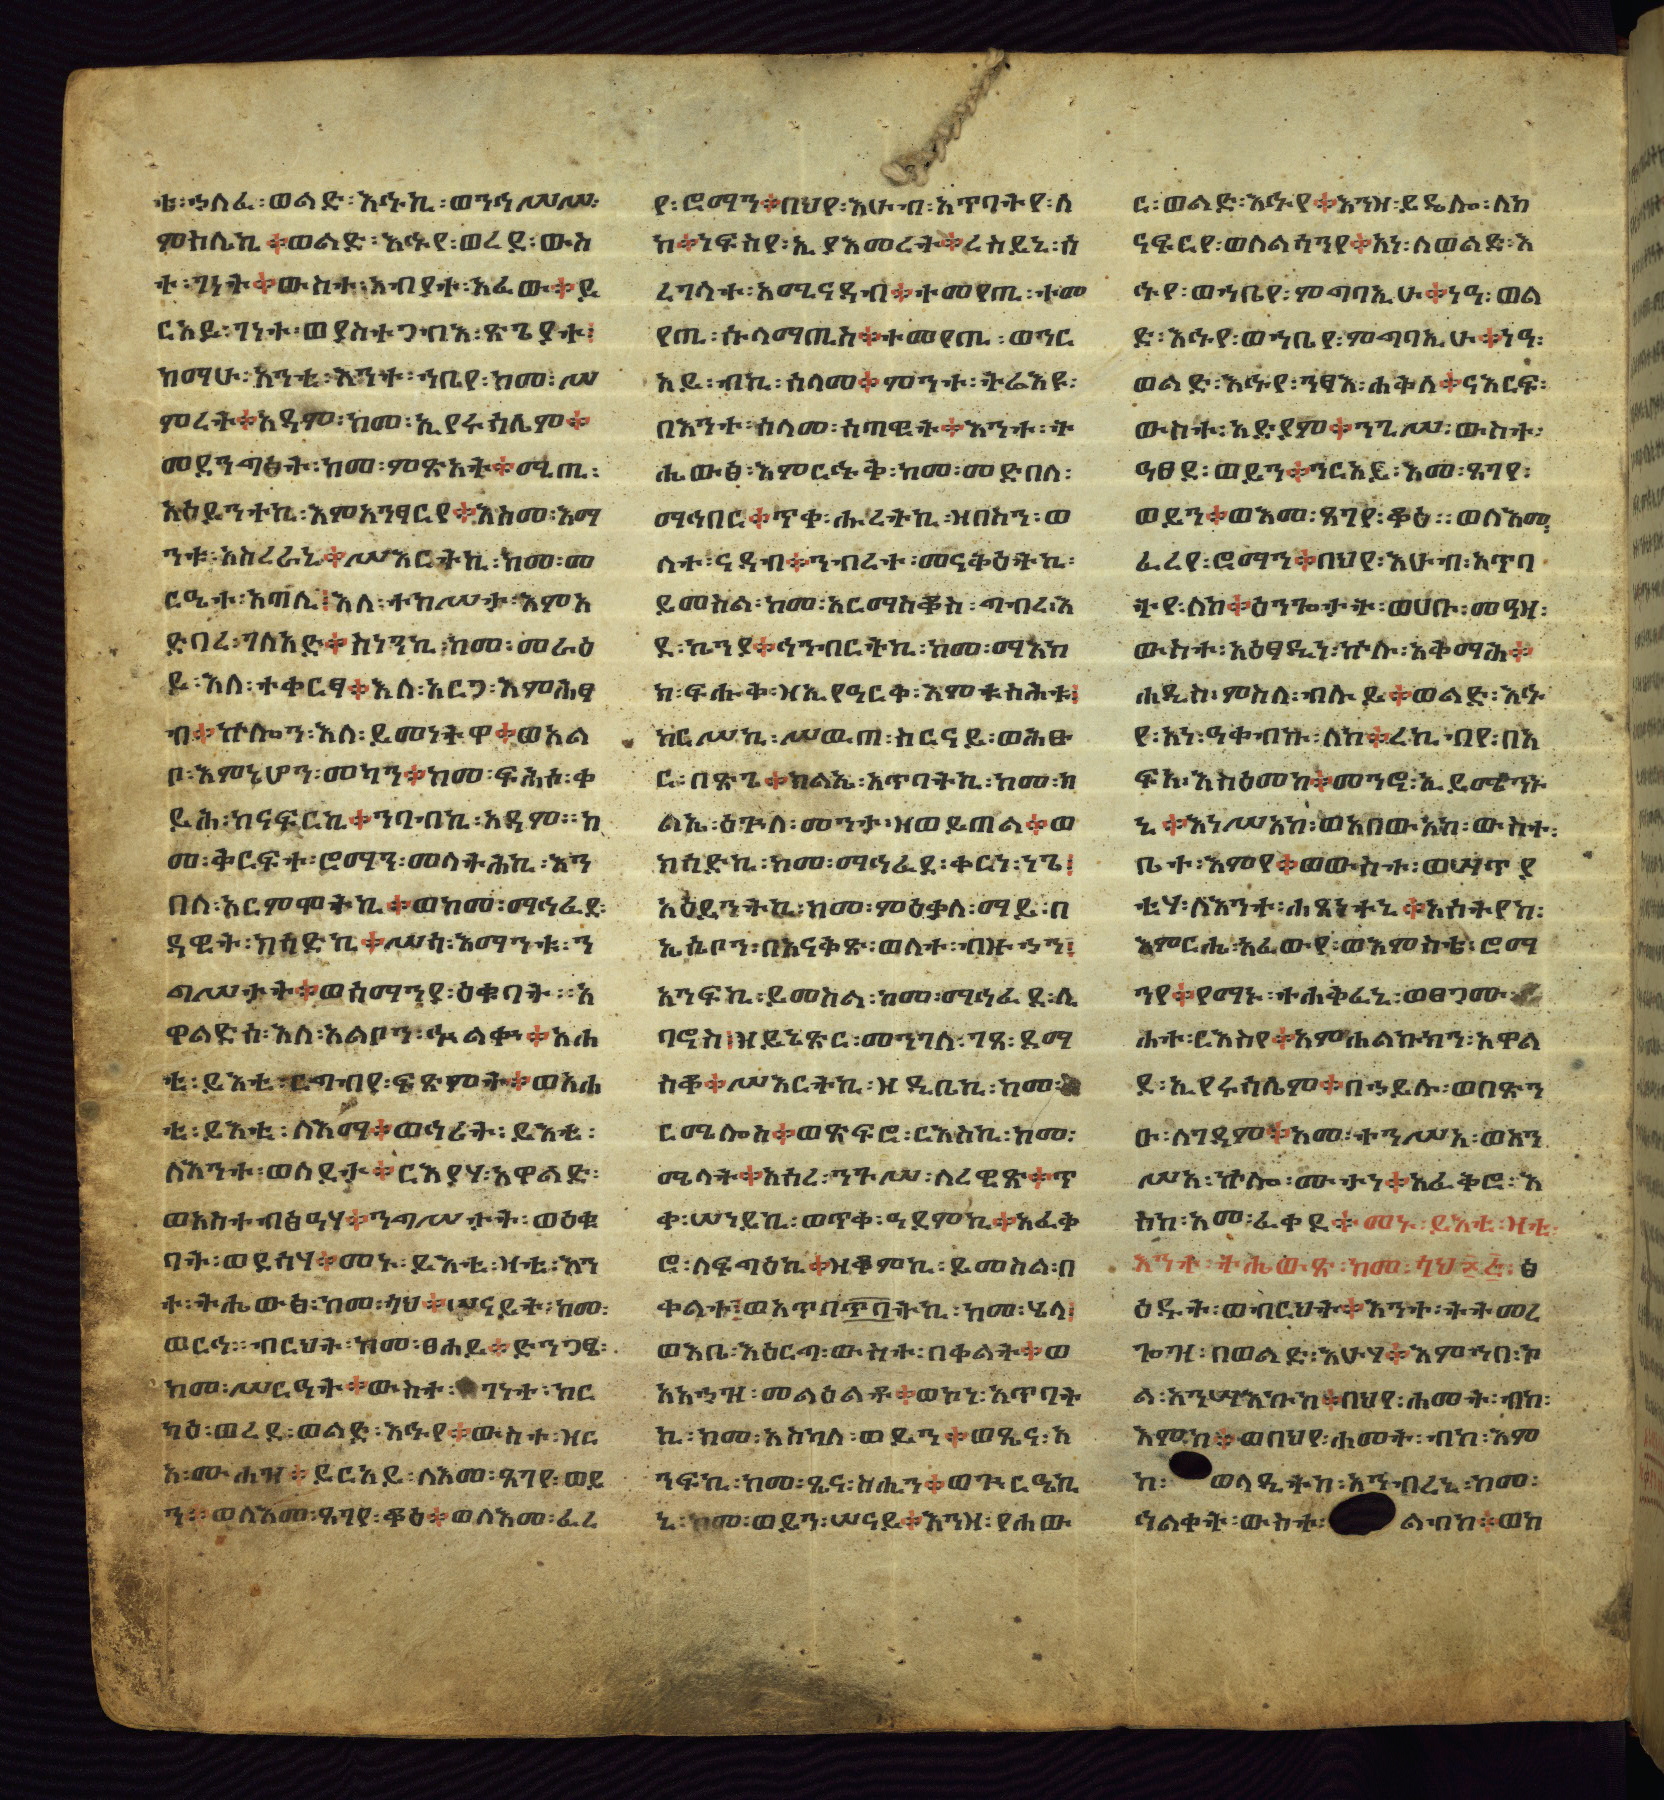 ቱ፡ኀለፈ፡ወልድ፡እኁኪ፡ወንኅሠሦ፡
ምስሌኪ፨ወልድ፡እኁየ፡ወረደ፡ውስ
ተ፡ገነት፨ውስተ፡አብያተ፡አፈው፨ይ
ርአይ፡ገነተ፡ወያስተጋብእ፡ጽጌያተ፤
ከማሁ፡አንቲ፡እንተ፡ኀቤየ፡ከመ፡ሠ
ምረት፨አዳም፡ከመ፡ኢየሩሳሌም፨
መደንግፅት፡ከመ፡ምጽአት፨ሚጢ፡
አዕይንተኪ፡እምአንፃርየ፨እስመ፡እማ
ንቱ፡አስረራኒ፨ሥእርትኪ፡ከመ፡መ
ርዔተ፡አጣሊ፤እለ፡ተከሥታ፡እምእ
ድባረ፡ገለአድ፨ስነንኪ፡ከመ፡መራዕ
ይ፡እለ፡ተቀርፃ፨እለ፡አርጋ፡እምሕፃ
ብ፨ኵሎን፡እለ፡ይመነትዋ፨ወአል
ቦ፡እምኔሆን፡መካን፨ከመ፡ፍሕሶ፡ቀ
ይሕ፡ከናፍርኪ፨ንባብኪ፡አዳም፡፡ከ
መ፡ቅርፍተ፡ሮማን፡መላትሕኪ፡እን
በለ፡አርምሞትኪ፨ወከመ፡ማኅፈደ፡
ዳዊት፡ክሳድኪ፨ሥሳ፡እማንቱ፡ን
ግሥታት፨ወሰማንያ፡ዕቁባት፡፡አ
ዋልድሰ፡እለ፡አልቦን፡ኈልቍ፨አሐ
ቲ፡ይእቲ፡ርግብየ፡ፍጽምት፨ወአሐ
ቲ፡ይእቲ፡ለእማ፨ወኅሪት፡ይእቲ፡
ለእንተ፡ወለደታ፨ርእያሃ፡አዋልድ፡
ወአስተብፅዓሃ፨ንግሥታት፡ወዕቁ
ባት፡ወይሴብሃ፨መኑ፡ይእቲ፡ዛቲ፡እን
ተ፡ትሔውፅ፡ከመ፡ጎህ፨ሠናይት፡ከመ፡
ወርኅ፡፡ብርህት፡ከመ፡ፀሐይ፨ድንጋፄ፡
ከመ፡ሥርዓት፨ውስተ፡ገነተ፡ከር
ካዕ፡ወረደ፡ወልድ፡እኁየ፨ውስተ፡ዘር
አ፡ሙሐዝ፨ይርአይ፡ለእመ፡ጸገየ፡ወይ
ን፨ወለእመ፡ጸገየ፡ቆዕ፨ወለእመ፡ፈረ
የ፡ሮማን፨በህየ፡እሁብ፡አጥባትየ፡ለ
ከ፨ነፍስየ፡ኢያእመረት፨ረሰይኒ፡ሰ
ረገላተ፡አሚናዳብ፨ተመየጢ፡ተመ
የጢ፡ሱላማጢስ፨ተመየጢ፡ወንር
አይ፡ብኪ፡ሰላመ፨ምንተ፡ትሬእዩ፡
በእንተ፡ሰላመ፡ሰጣዊት፨እንተ፡ት
ሔውፅ፡እምርኁቅ፡ከመ፡መድበለ፡
ማኅበር፨ጥቀ፡ሑረትኪ፡ዘበአሣን፡ወ
ለተ፡ናዳብ፨ንብረተ፡መናቅዕትኪ፡
ይመስል፡ከመ፡አርማስቆስ፡ግብረ፡እ
ደ፡ኬንያ፨ኅንብርትኪ፡ከመ፡ማእከ
ክ፡ፍሑቅ፡ዘኢየዓርቅ፡እምቱስሕቱ፤
ከርሥኪ፡ሠዊጠ፡ስርናይ፡ወሕፁ
ር፡በጽጌ፨ክልኤ፡አጥባትኪ፡ከመ፡ክ
ልኤ፡ዕጕለ፡መንታ፡ዘወይጠል፨ወ
ክሳድኪ፡ከመ፡ማኅፈደ፡ቀርነ፡ነጌ፤
አዕይንትኪ፡ከመ፡ምዕቃለ፡ማይ፡በ
ኤሴቦን፡በአናቅጽ፡ወለተ፡ብዙኃን፤
አንፍኪ፡ይመስል፡ከመ፡ማኅፈደ፡ሊ
ባኖስ፤ዘይኔጽር፡መንገለ፡ገጸ፡ደማ
ስቆ፨ሥእርትኪ፡ዘዲቤኪ፡ከመ፡
ርሜሎስ፨ወጽፍሮ፡ርእስኪ፡ከመ፡
ሜላት፨እስረ፡ንጉሥ፡ለረዊጽ፨ጥ
ቀ፡ሠነይኪ፡ወጥቀ፡ዓደምኪ፨አፈቅ
ሮ፡ለፍግዕኪ፨ዘቆምኪ፡ይመስል፡በ
ቀልተ፤ወአጥበጥባትኪ፡ከመ፡ሄላ፤
ወእቤ፡እዕርግ፡ውስተ፡በቀልት፨ወ
እእኅዝ፡መልዕልቶ፨ወኮነ፡አጥባት
ኪ፡ከመ፡አስካለ፡ወይን፨ወጼና፡አ
ንፍኪ፡ከመ፡ጼና፡ስሒን፨ወጕርዔኪ
ኒ፡ከመ፡ወይን፡ሠናይ፨እንዘ፡የሐው
ር፡ወልድ፡እኁየ፨እንዘ፡ይዴሎ፡ለከ
ናፍርየ፡ወለልሳንየ፨አነ፡ለወልድ፡እ
ኁየ፡ወኀቤየ፡ምግባኢሁ፨ነዓ፡ወል
ድ፡እኁየ፡ወኀቤየ፡ምግባኢሁ፨ነዓ፡
ወልድ፡እኁየ፡ንፃእ፡ሐቅለ፨ናእርፍ፡
ውስተ፡አድያም፨ንጊሥ፡ውስተ፡
ዓፀደ፡ወይን፨ንርአይ፡እመ፡ጸገየ፡
ወይን፨ወእመ፡ጸገየ፡ቆዕ፡፡ወለእመ፡
ፈረየ፡ሮማን፨በህየ፡እሁብ፡አጥባ
ትየ፡ለከ፨ዕንጐታት፡ወሀቡ፡መዓዛ፡
ውስተ፡አዕፃዲነ፡ኵሉ፡አቅማሕ፨
ሐዲስ፡ምስለ፡ብሉይ፨ወልድ፡እኁ
የ፡አነ፡ዓቀብኩ፡ለከ፨ረኪብየ፡በአ
ፍአ፡እስዕመከ፨መንሮ፡ኢይሜንኑ
ኒ፨እነሥአከ፡ወአበውአከ፡ውስተ፡
ቤተ፡እምየ፨ወውስተ፡ወሣጥያ
ቲሃ፡ለእንተ፡ሐጸነተኒ፨አስትየከ፡
እምርሔ፡አፈውየ፡ወእምስቴ፡ሮማ
ንየ፨የማኑ፡ተሐቅፈኒ፡ወፀጋሙ፡
ሐተ፡ርእስየ፨አምሐልኩክን፡አዋል
ደ፡ኢየሩሳሌም፨በኀይሉ፡ወበጽን
ዑ፡ለገዳም፨እመ፡ተንሥአ፡ወእን
ሥአ፡ኵሎ፡ሙታነ፨አፈቅሮ፡እ
ስከ፡አመ፡ፈቀደ፨መኑ፡ይእቲ፡ዛቲ፡
እንተ፡ትሔውጽ፡ከመ፡ጎህ፡፡ፅ
ዕዱት፡ወብርህት፨እንተ፡ትትመረ
ጐዝ፡በወልድ፡እሁሃ፨እምኀበ፡ኮ
ል፡አንሣእኩከ፨በህየ፡ሐመት፡ብከ፡
እምከ፨ወበህየ፡ሐመት፡ብከ፡እም
ከ፡ወላዲትከ፡አንብረኒ፡ከመ፡
ኅልቀት፡ውስተ፡ልብከ፨ወከ